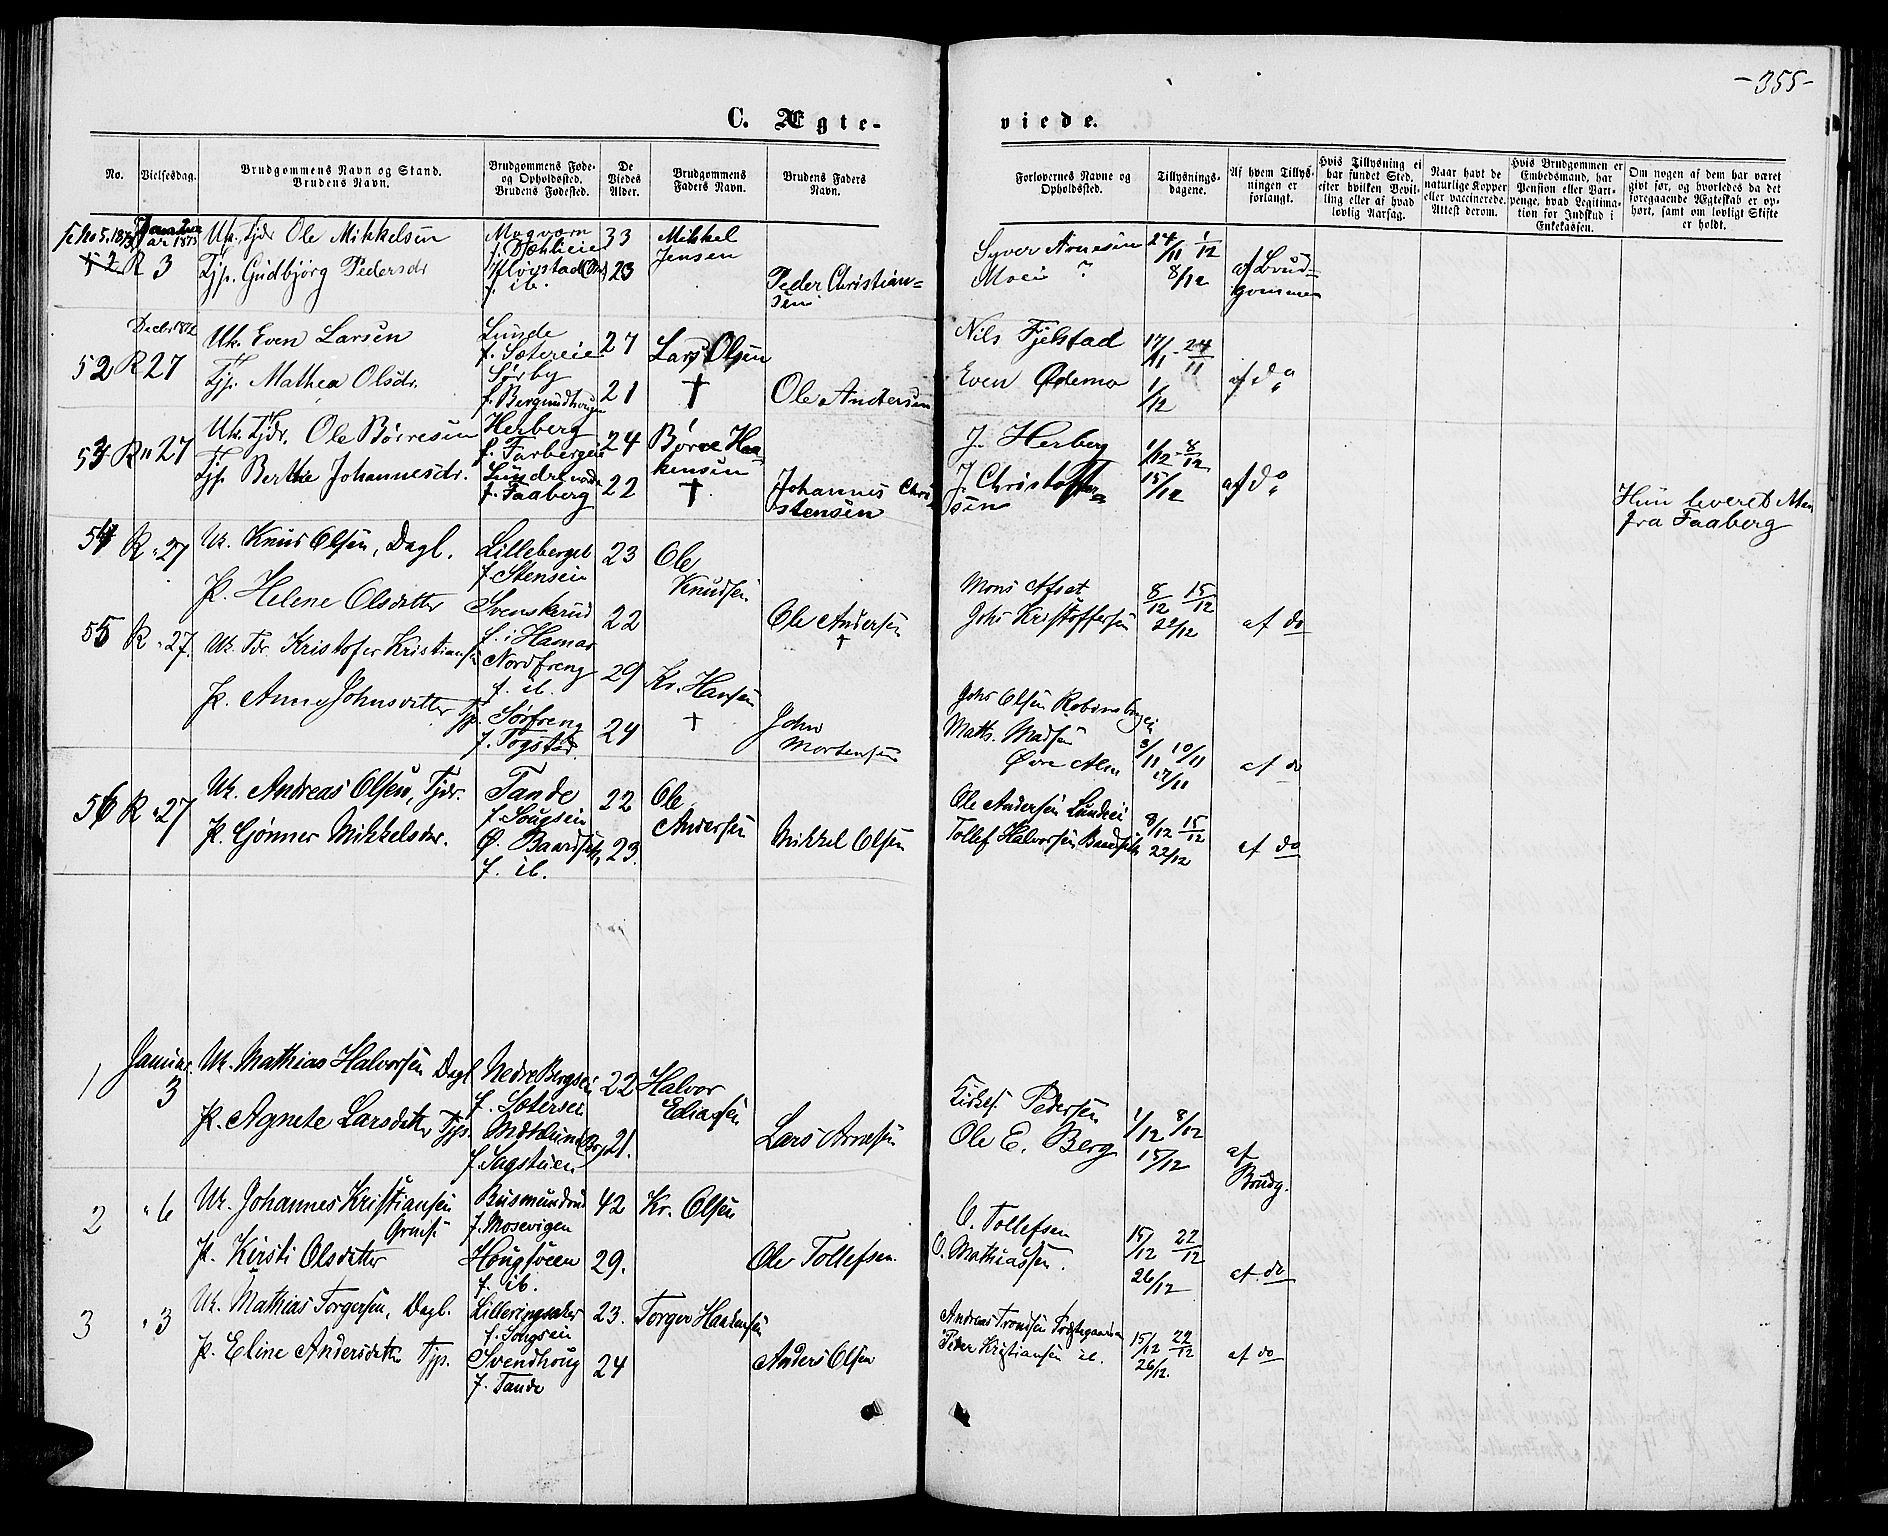 -355-
C. Ægte-
viede.
No.
Vielsesdag.
Brudgommens Navn og Stand.
Brudens Navn.
Brudgommens Føde-
og Opholdssted.
Brudens Fødested.
De
Viedes
Alder.
Brudgommens
Faders Navn.
Brudens Faders
Navn.
Forlovernes Navne og
Opholdssted.
Tillysnings-
dagene.
Af hvem Tillys-
ningen er
forlangt.
Hvis Tillysning ei
har fundet Sted,
efter hvilken Bevil-
ling eller af hvad
lovlig Aarsag.
Naar havt de
naturlige Kopper
eller vaccinerede.
Attest derom.
Hvis Brudgommen er
Embedsmand, har
Pension eller Vart-
penge, hvad Legitima-
tion for Indskud i
Enkekassen.
Om nogen af dem har været
gift før, og hvorledes da det
foregaaende Ægteskab er op-
hørt, samt om lovligt Skifte
er holdt.
se No 5. 1873
R 3
Uk. Tjdr Ole Mikkelsen
33
Mikkel
Jensen
Syver Arnesen
24/11 1/12
Tjp. Gudbjørg Pedersdr
f. ib.
23
Peder Christian=
sen
Moei ?
8/12
af Brud=
gommen
Decbr 1872
52 R 27
Uk. Even Larsen
Lunde
f. Sætereie
27
Lars Olsen
†
Nils Fjelstad
17/11 - 24/11
Tjp. Mathea Olsdr.
Sørby
21
Ole Andersen
Even Ødemo
1/12
af do
53 R " 27
Uk. Tjdr. Ole Børresen
Herberg
24
Børre Haa=
kensen
†
J. Herberg
1/12 - 8/12
Tjp. Berthe Johannesdr.
f. Faaberg
22
Johannes Chri
stensen
J. Christoffer=
sen
15/12
af do
Hun leveret Att.
fra Faaberg
54 R " 27
Uk. Knud Olsen, Dagl.
Lilleberget
f. Stensein
23
Ole
Knudsen
Mons Afset
8/12 15/12
P. Helene Olsdatter
Svenskerud
f. i Hamar
22
Ole Andersen
†
Johs Kristoffersen
22/12
af do
55 R " 27.
Uk. Tdr. Kristofer Kristiansen
Nordfreng
f. ib.
29
Kr. Hansen
†
Johs Olsen
Matts. Madsen
3/11 10/11
P. Anne Johnsdatter Tjp.
Sørfreng
f. Togstad
24
John
Mortensen
Øvre Alm
17/11
af do
56 R " 27
Uk. Andreas Olsen, Tjdr.
Tande
f. Sougsein
22
Ole
Andersen
Ole Andersen Lundeei
8/12 15/12
P. Gjønner Mikkelsdr.
Ø. Baardseth
f. ib.
23.
Mikkel Olsen
Tollef Halvorsen Baardseth
22/12
af do
1
Januar
3
Uk. Mathias Halvorsen Dagl
Nedre Bergsei
f. Sætersei
22
Halvor
Eliassen
Pedersen
1/12 8/12
P. Agnete Larsdatter Tjp.
f. Sagstuen
21.
Lars Arnesen
Ole E. Berg
15/12
af
Brudg.
2
" 6
Uk. Johannes Kristiansen
Gaardm.
Busmundrud
f. Mosevigen
42
Kr. Olsen
O. Tollefsen
15/12 22/12
P. Kirsti Olsdatter
Hougsveen
f. ib.
29.
Ole Tollefsen.
O. Mathiassen.
26/12
af do
3
" 3
Uk. Mathias Torgersen, Dagl.
Lilleringsaker
f. Sougsein
23.
Torger Haakensen
Andreas Trondsen
15/12 22/12
P. Eline Andersdatter Tjp.
Svendhoug
f. Tande
24
Anders Olsen
Peder Kristiansen ib.
26/12.
af do